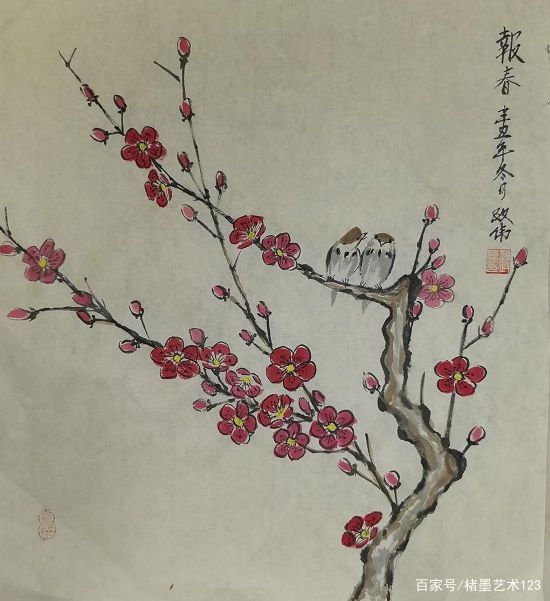 報春 辛丑年冬月 政伟
百家号/楮墨艺术123